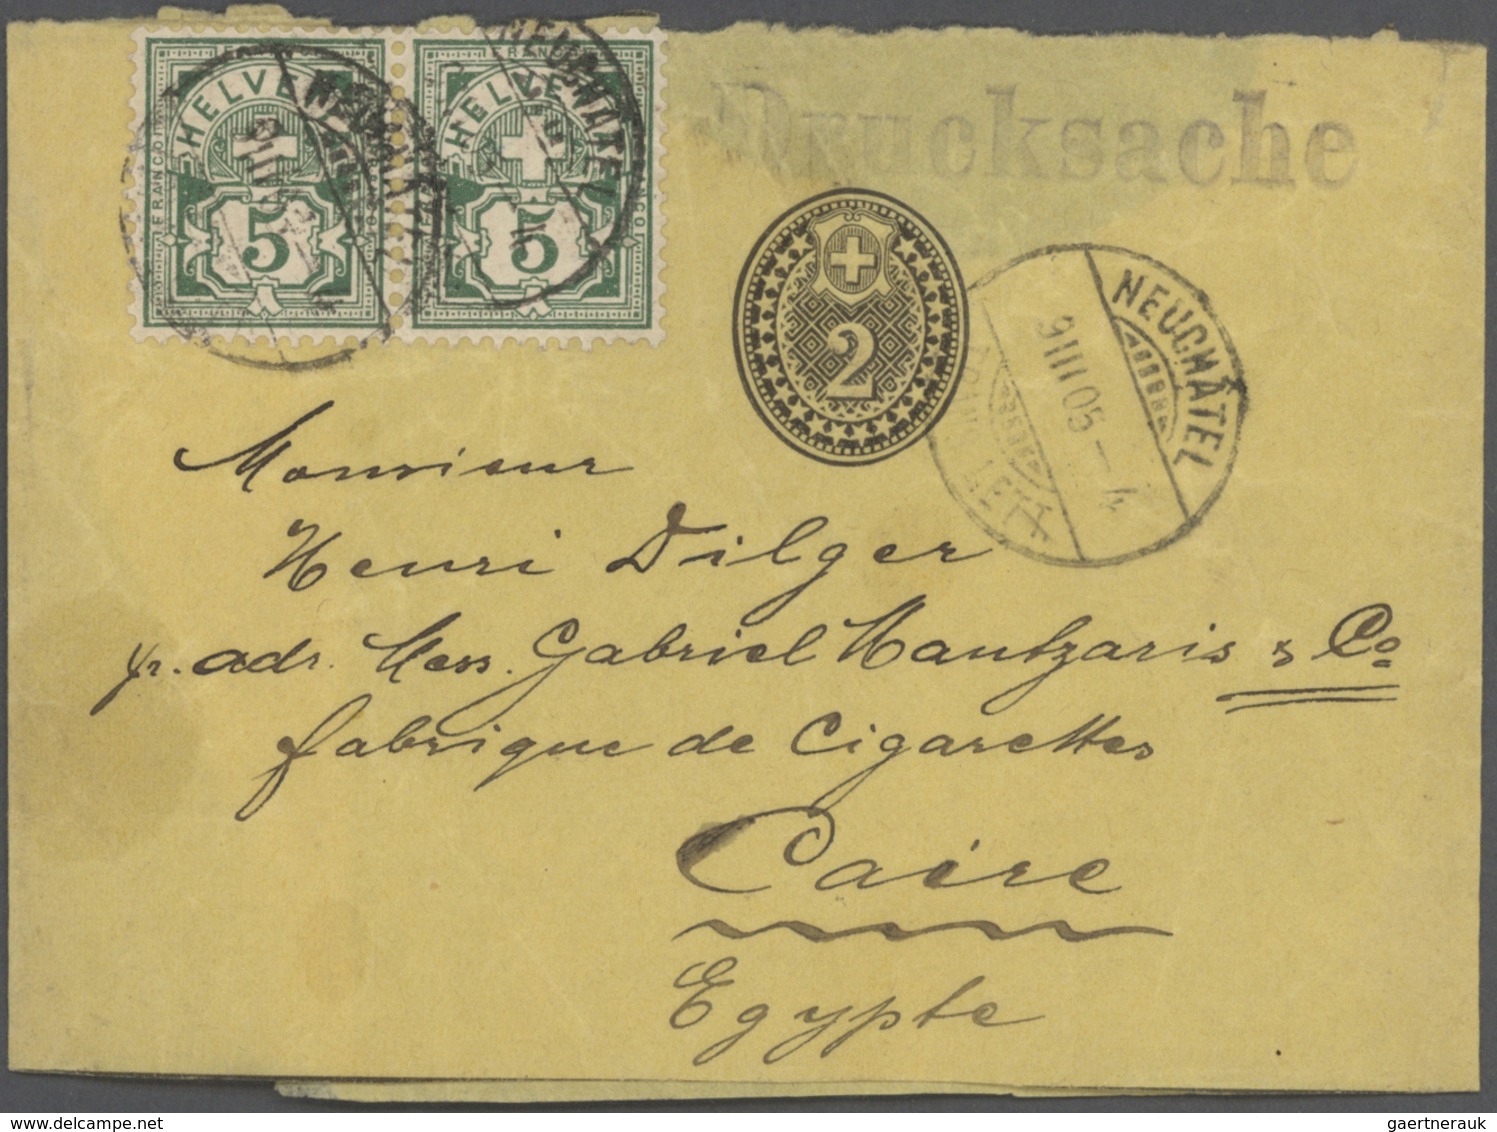 Drucksache
HELVETIA
FRANCO
5
HELVETIA
FRANCO
5
NEUCHÂTEL
2
NEUCHÂTEL
9 III 05 – 4
Monsieur
Henri Dilger
pr. adr. Mess. Gabriel Mantzaris & Co
fabrique de Cigarettes
Caire
Egypte
www.delcampe.net
gaertnerauk